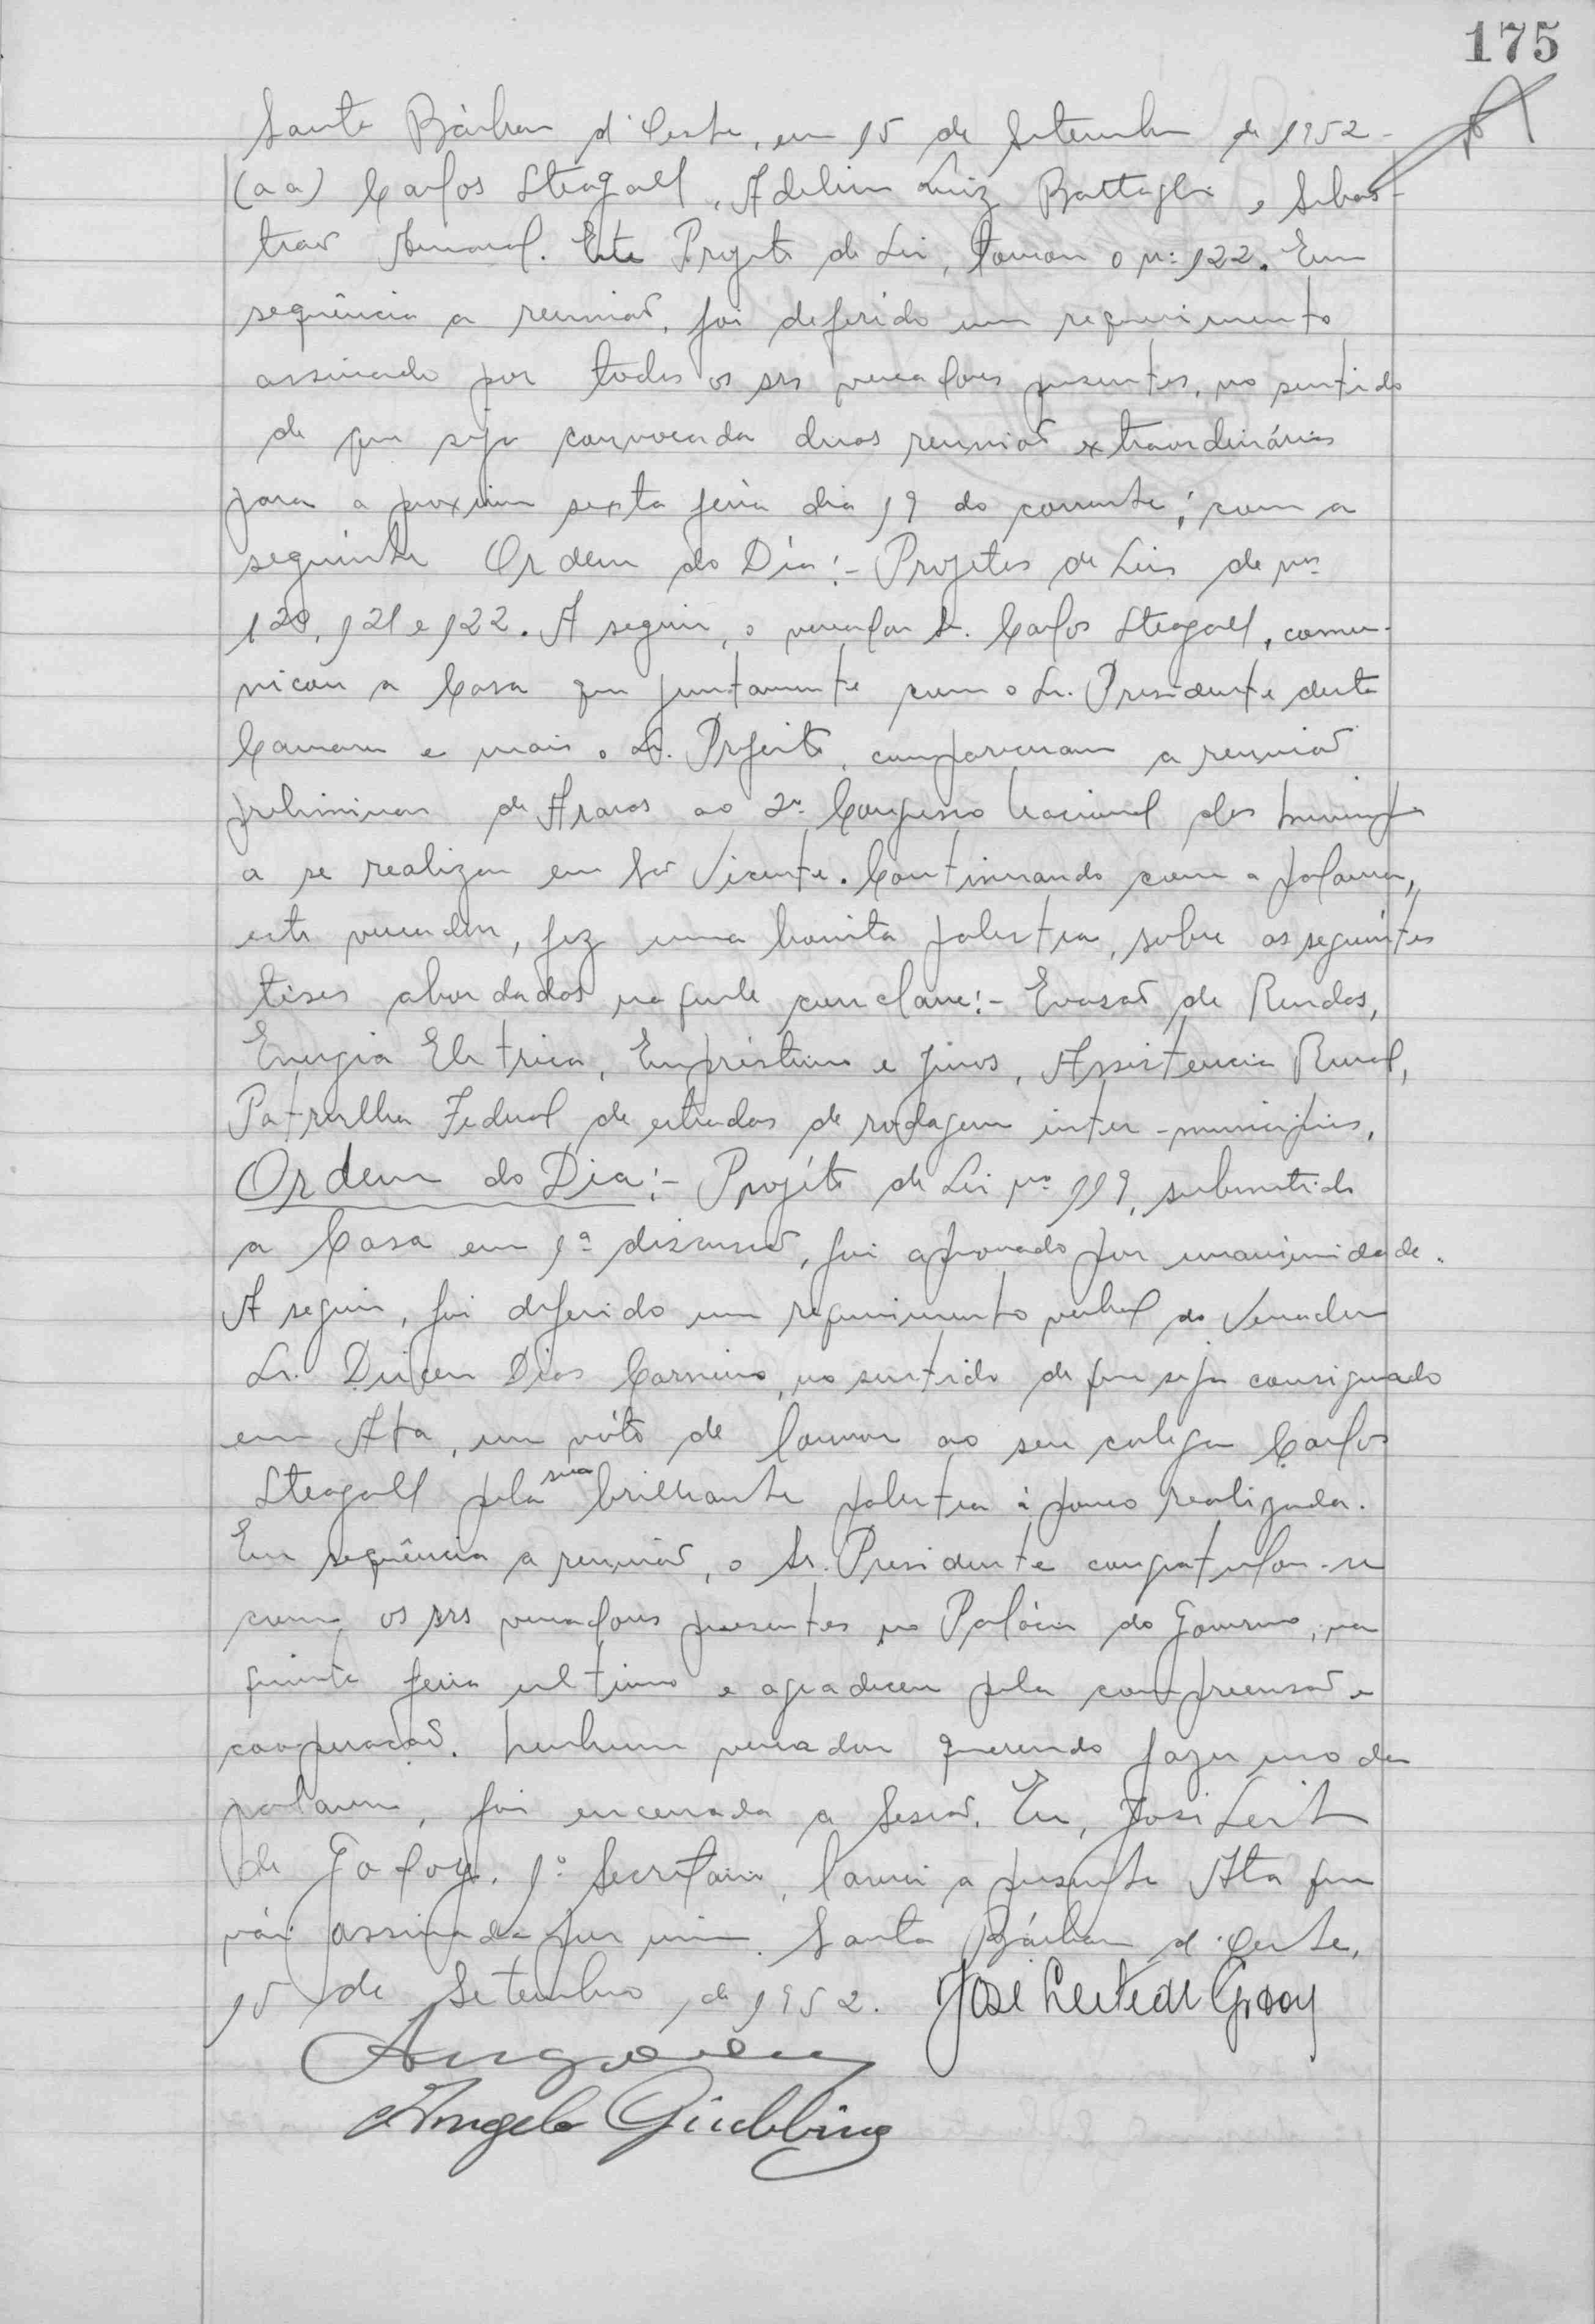 175
Santa Bárbara d'Oeste, em 15 de Setembro de 1952 -
(aa) Carlos Steagall, Adelino Luiz Battaglia e Sebas-
tião Amaral. Este Projeto de Lei, tomou o nº 122. Em
sequência a reunião, foi deferido um requerimento
assinado por todos os srs vereadores presentes, no sentido
de que seja convocada duas reunião extraordinárias
para a proxima sexta feira dia 19 do corrente; com a
seguinte Ordem do Dia:- Projetos de Leis de nos
120, 121 e 122. A seguir, o vereador Sr. Carlos Steagall, comu-
nicou a Casa que juntamente com o Sr. Presidente desta
Camara e mais o Sr. Prefeito, compareceram a reunião
preliminar de Araras ao 2º Congresso Nacional dos Municipios
a se realizar em São Vicente. Continuando com a palavra,
este vereador, fez uma bonita palestra, sobre as seguintes
téses abordadas naquele conclave:- Evasão de Rendas,
Energia Eletrica, Empréstimo e Juros, Assistencia Rural,
Patrulha Federal de estradas de rodagem inter-municipios,
Ordem do Dia:- Projéto de Lei nº 119, submetido
a Casa em 1ª discussão, foi aprovado por unanimidade.
A seguir, foi deferido um requerimento verbal do Vereador
Sr. Dirceu Dias Carneiro, no sentido de que seja consignado
em Ata, um vóto de louvor ao seu colega Carlos
Steagall pela sua brilhante palestra à pouco realizada.
Em sequência a reunião, o Sr. Presidente congratulou-se
com os srs vereadores presentes no Palácio do Governo, na
quinta feira ultima e agradeceu pela compreensão e
cooperação. Nenhum vereador querendo fazer uso da
palavra, foi encerrada a Sessão. Eu, José Leite
de Godoy, 1º Secretario, lavrei a presente Ata que
vái assinada por mim. Santa Bárbara d'Oeste,
15 de Setembro de 1952. José Leite de Godoy
Angelo Giubbina